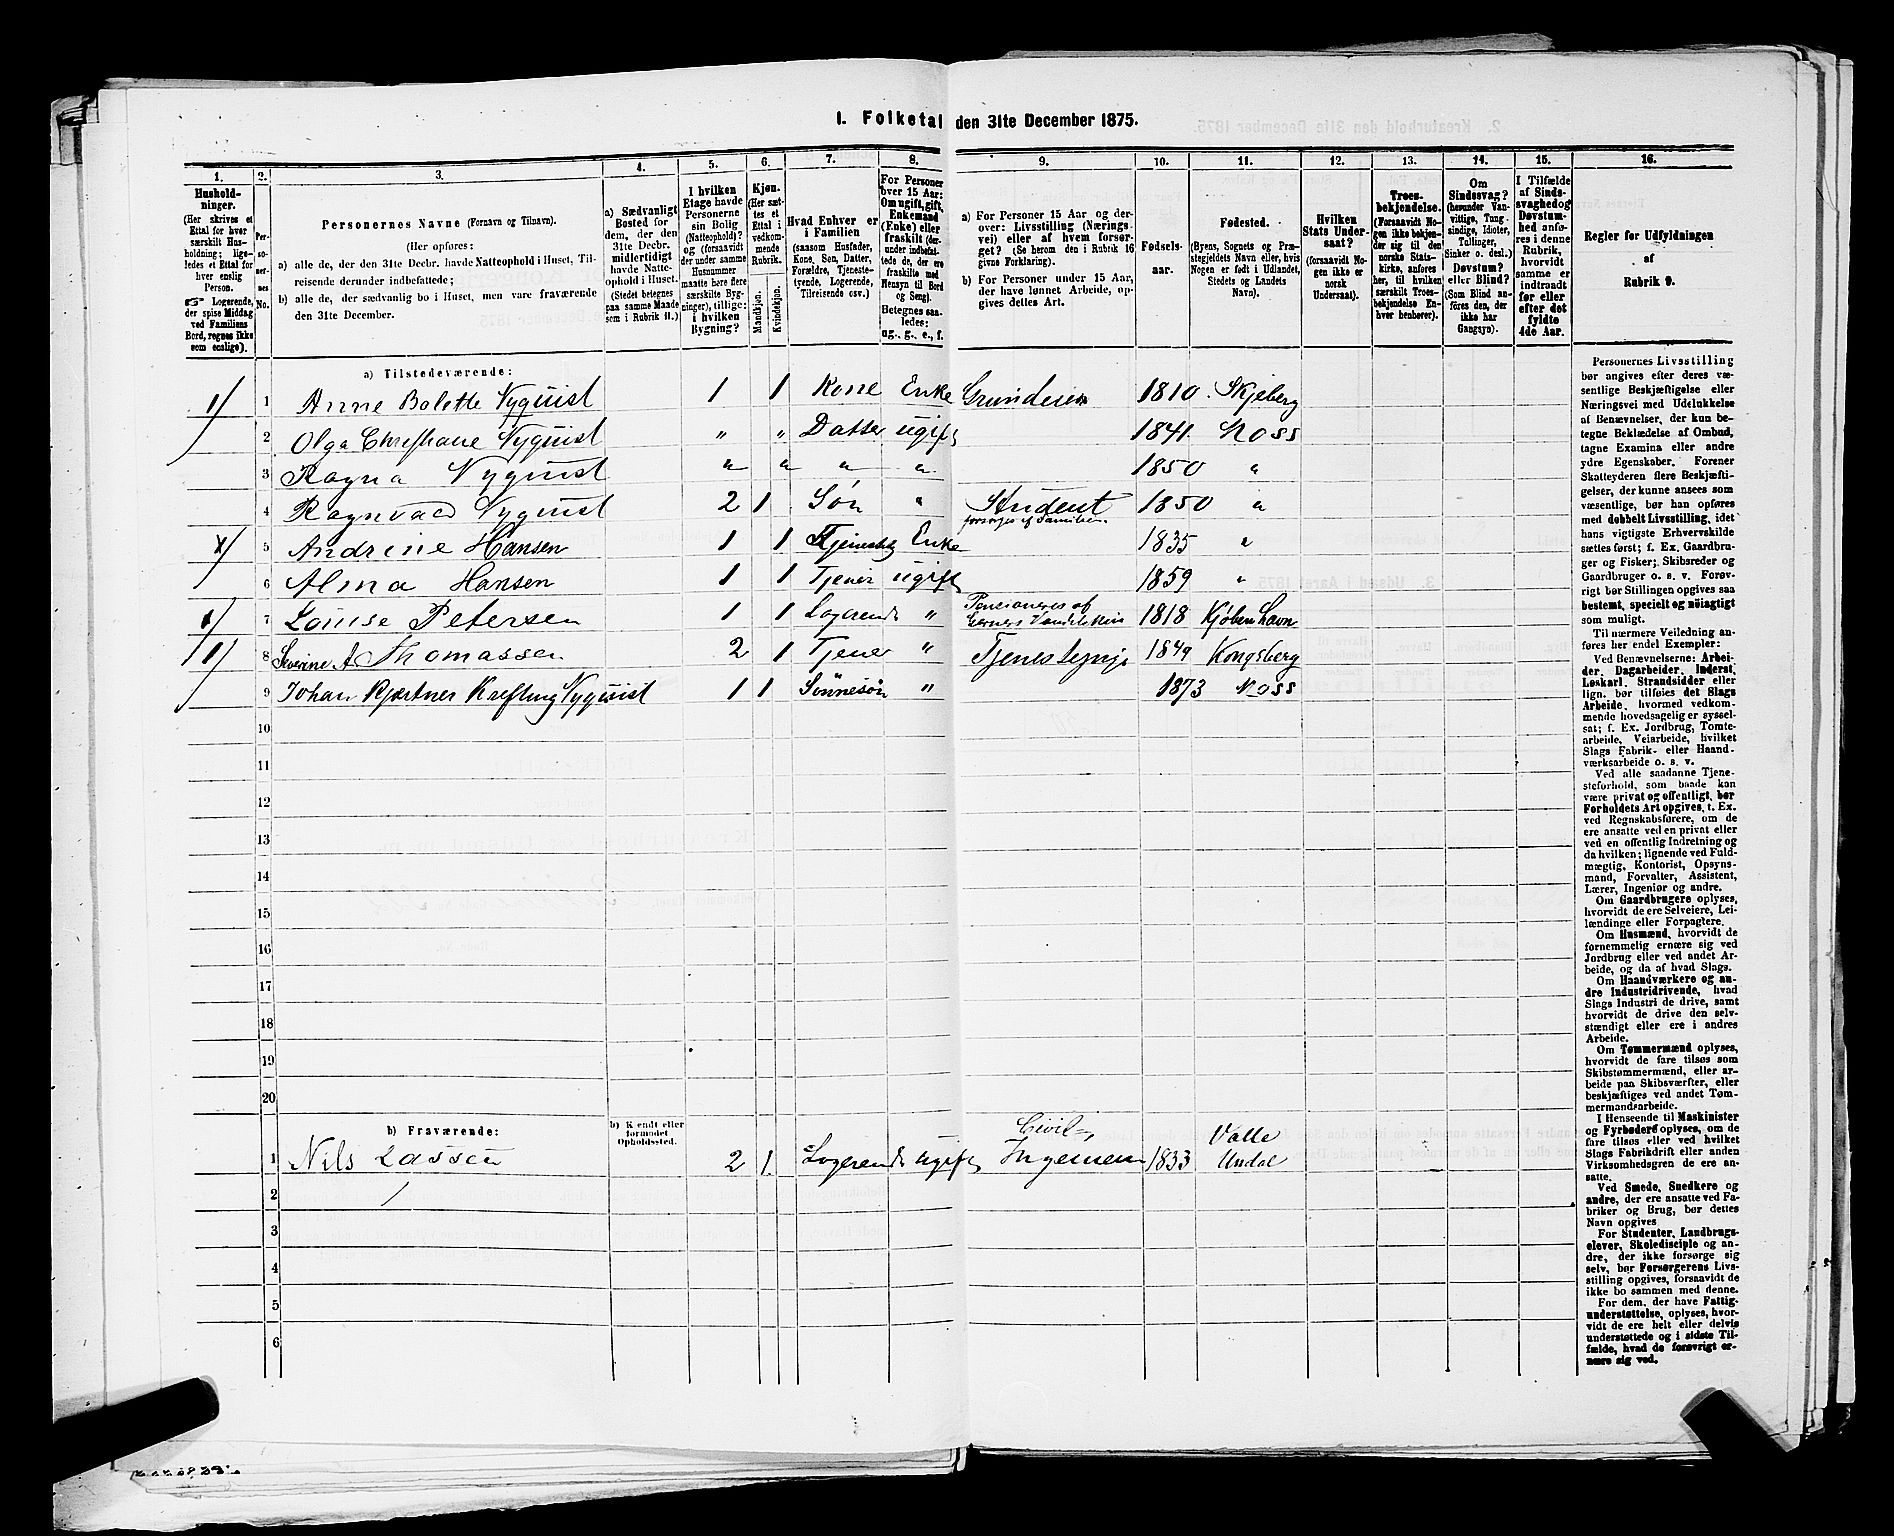 I. Folketal den 31te December 1875.
1. 2. 3. 4. 5. 6. 7. 8. 9. 10. 11. 12. 13. 14. 15. 16.
Husholdninger.
(Her skrives et
Ettal for hver
særskilt Husholdning;
ligeledes et Ettal for
hver enslig
Person.
☞ Logerende,
der spise Middag
ved Familiens
Bord, regnes ikke
som enslige).
Personernes No.
Personernes Navne (Fornavn og Tilnavn).
(Her opføres:
a) alle de, der den 31te Decbr. havde Natteophold i Huset, Tilreisende derunder indbefattede;
b) alle de, der sædvanlig bo i Huset, men vare fraværende
den 31te December.
a) Sædvanligt
Bosted for
dem, der den
31te Decbr.
midlertidigt
havde Natteophold i Huset.
(Stedet betegnes
paa samme Maade
som i Rubrik 11.)
I hvilken
Etage havde
Personerne
sin Bolig
(Natteophold)?
og (forsaavidt
der under samme
Husnummer
maatte høre flere
særskilte Bygninger), tillige:
i hvilken
Bygning?
Kjøn.
(Her sættes et
Ettal i
vedkommende
Rubrik.
Mandkjøn.
Kvindekjøn.
Hvad Enhver er
i Familien
(saasom Husfader,
Kone, Søn, Datter,
Forældre, Tjenestetyende, Logerende,
Tilreisende osv.)
For Personer
over 15 Aar:
Om ugift, gift,
Enkemand
(Enke) eller
fraskilt (derunder indbefattede de, der ere
fraskilte med
Hensyn til Bord
og Seng).
Betegnes saaledes:
ug., g., e., f.
a) For Personer 15 Aar og derover: Livsstilling (Næringsvei) eller af hvem forsørget? (Se herom den i Rubrik 16
givne Forklaring).
b) For Personer under 15 Aar,
der have lønnet Arbeide, opgives dettes Art.
Fødselsaar.
Fødested.
(Byens, Sognets og Præstegjeldets Navn eller, hvis
Nogen er født i Udlandet,
Stedets og Landets
Navn).
Hvilken
Stats Undersaat?
(forsaavidt Nogen ikke er
norsk
Undersaat).
Troesbekjendelse.
(Forsaavidt Nogen ikke bekjender sig til den
norske Statskirke, anføres
her, til hvilken
særskilt Troesbekjendelse Enhver benhører).
Om
Sindssvag?
(herunder Vanvittige, Tungsindige, Idioter,
Tullinger,
Sinker o. desl.)
Døvstum?
eller Blind?
(Som Blind anføres den, der
ikke har
Gangsyn).
I Tilfælde
af Sindssvaghed og
Døvstumhed anføres i denne
Rubrik,
hvorvidt
samme er
indtraadt
før eller
efter det
fyldte
4de Aar.
Regler for Udfyldningen
af
Rubrik 9.
a) Tilstedeværende:
1 1 Anne Bolette Nyquist 1 1 Kone Enke 1810 Skjeberg
2 Olga Christiane Nyquist " " Datter ugift 1841. Moss
3 Ragna Nyquist " " " " 1850 "
4 Ragnvald Nyquist 2 1 Søn " Student 1850 "
forsørges af Familien.
5 Andrine Hansen 1 1 Enke 1835 "
6 Alma Hansen 1 1 Tjener ugift 1859 "
1 7 Louise Petersen 1 1 Logerende " Pensioneres af 1818 Kjøbenhavn
1 8 Severine A Thomassen 2 1 Tjener " 1849 Kongsberg
9 Johan Kjertner Krefting Nyquist 1 1 Sønnesøn " 1873 Moss
10
11
12
13
14
15
16
17
18
19
20
b) Fraværende:
b) Kendt eller
formodet
Opholdssted.
Civil- Valle
1 Nils Lassen 2 1. Logerende ugift Ingeniem 1833 Undal
2
3
4
5
6
Personernes Livsstilling
bør angives efter deres væsentlige Beskjæftigelse eller
Næringsvei med Udelukkelse
af Benævnelser, der kun betegne Beklædelse af Ombud,
tagne Examina eller andre
ydre Egenskaber. Forener
Skatteyderen flere Beskjæftigelser, der kunne ansees som
væsentlige, bør han opføres
med dobbelt Livsstilling, idet
hans vigtigste Erhvervskilde
sættes først; f. Ex. Gaardbruger og Fisker; Skibsreder og
Gaardbruger o. s. v. Forøvrigt bør Stillingen opgives saa
bestemt, specielt og nøiagtigt
som muligt.
Til nærmere Veiledning anføres her endel Exempler:
Ved Benævnelserne: Arbeider, Dagarbeider, Inderst,
Løskarl, Strandsidder eller
lign. bør tilføies det Slags
Arbeide, hvormed vedkommende hovedsagelig er sysselsat; f. Ex. Jordbrug, Tomtearbeide, Veiarbeide, hvilket
Slags Fabrik- eller Haandværksarbeide o. s. v.
Ved alle saadanne Tjenesteforhold, som baade kan
være privat og offentligt, bør
Forholdets Art opgives, t. Ex.
ved Regnskabsførere, om de
ere ansatte ved en privat eller
ved en offentlig Indretning og
da hvilken; lignende ved Fuldmægtig, Kontorist, Opsynsmand, Forvalter, Assistent,
Lærer, Ingeniør og andre.
Om Gaardbrugere oplyses,
hvorvidt de ere Selveiere, Leilændinge eller Forpagtere.
Om Husmænd, hvorvidt de
fornemmelig ernære sig ved
Jordbrug eller ved andet Arbeide, og da af hvad Slags.
Om Haandværkere og andre Industridrivende, hvad
Slags Industri de drive, samt
hvorvidt de drive den selvstændigt eller ere i andres
Arbeide.
Om Tømmermænd oplyses,
hvorvidt de fare tilsøs som
Skibstømmermænd, eller arbeide paa Skibsværfter, eller
beskjæftiges ved andet Tømmermandsarbeide.
I Henseende til Maskinister
og Fyrbødere oplyses, om de
fare tilsøs eller ved hvilket
Slags Fabrikdrift eller anden
Virksomhedsgren de ere ansatte.
Ved Smede, Snedkere og
andre, der ere ansatte ved Fabriker og Brug, bør dettes
Navn opgives
For Studenter, Landbrugselever, Skoledisciple og andre, der ikke forsørge sig
selv, bør Forsørgerens Livsstilling opgives, forsaavidt de
ikke bo sammen med denne.
For dem, der have Fattigunderstøttelse, oplyses, hvorvidt de ere helt eller delvis
understøttede og i sidste Tilfælde, hvad de forøvrigt ernære sig ved.